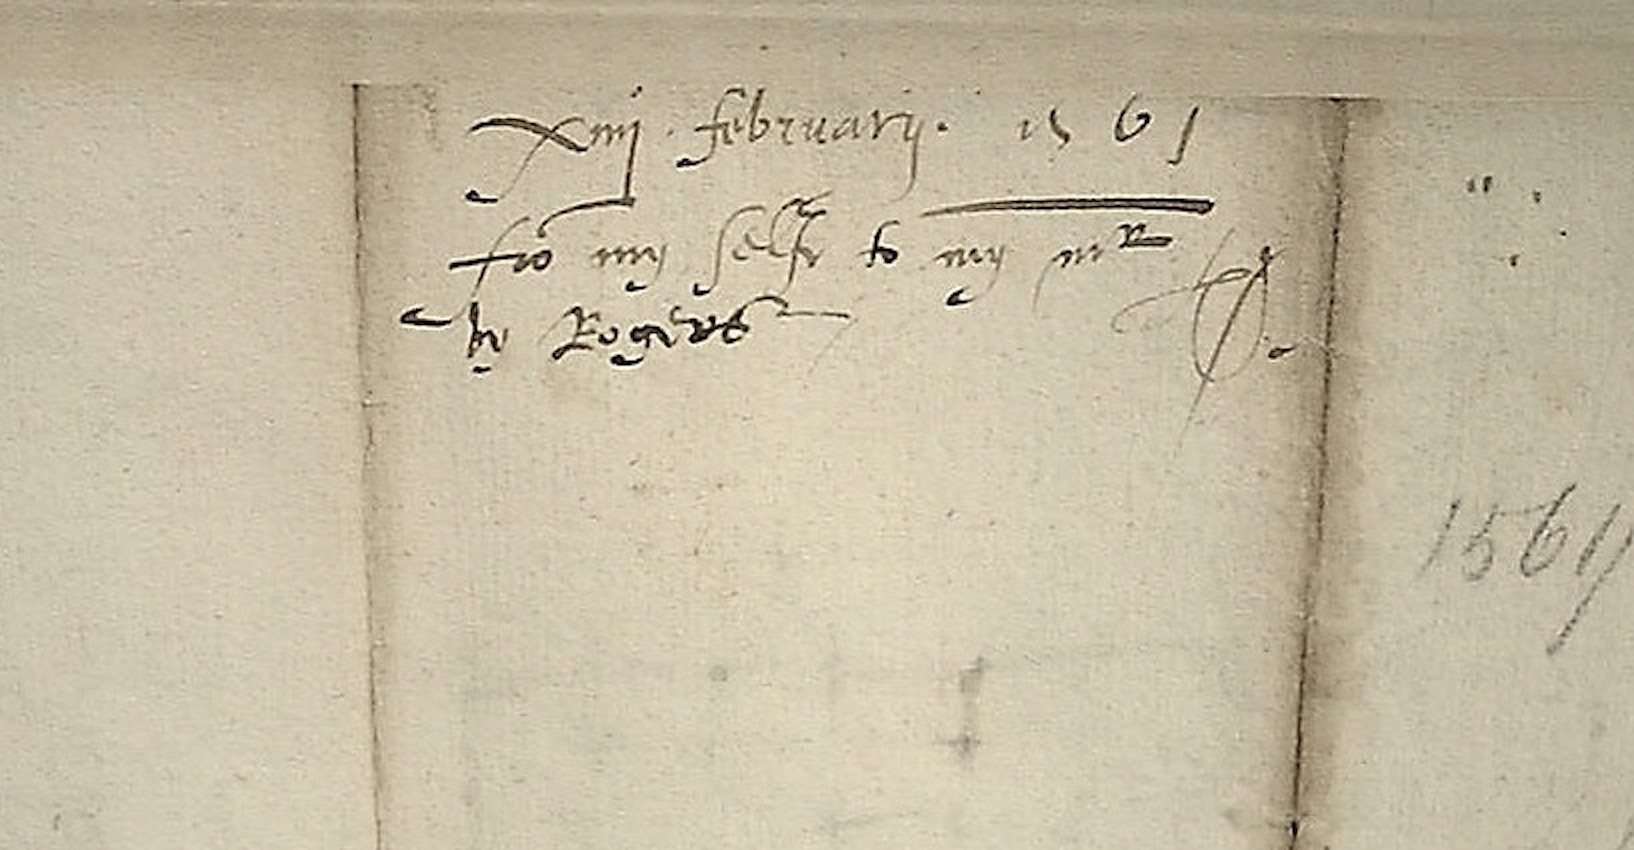 xiiij . februarij . 1561
fro my selfe to my mr
by Rogers
1561